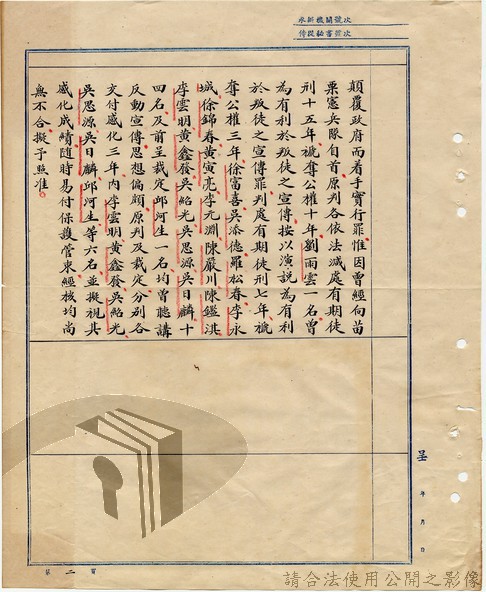 顛覆政府而着手實行罪惟因曾經向苗
栗憲兵隊自首原判各依法減處有期徒
刑十五年褫奪公權十年劉雨雲一名曾
為有利於叛徒之宣傳按以演說為有利
於叛徒之宣傳罪判處有期徒刑七年褫
奪公權三年徐富喜吳添德羅松春李永
城徐錦春黃寅亮李元淵陳嚴川陳鑑淇
李雲明黃鑫發吳紹光吳思源吳日麟十
四名及前呈裁定邱河生一名均曾聽講
反動宣傳思想偏頗原判及裁定分別各
交付感化三年內李雲明黃鑫發吳紹光
吳思源吳日麟邱河生等六名並擬視其
感化成績隨時易付保護管束經核均尚
無不合擬予照准
呈
年 月 日
第二頁
請合法使用公開之影像